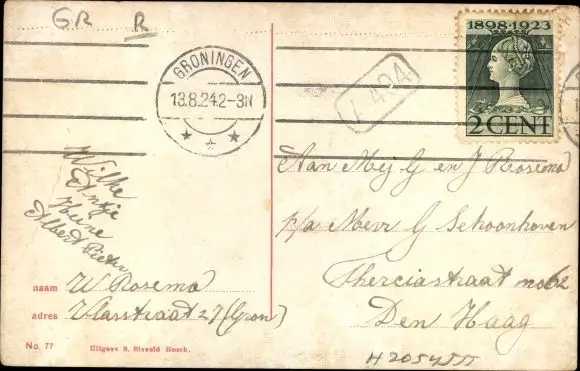 GR R
1898·1923
2 CENT
GRONINGEN
13.8.24.2-3N
L 404
Wilke
Antje
Heine
Albert Pieter
Aan Mej G en J Rosema
p/a Mevr G Schoonhoven
Therciastraat no 62
Den Haag
naam W Rosema
adres Vlasstraat 27 (Gron)
No. 77 Uitgave S. Eisvold Bosch.
H 205455